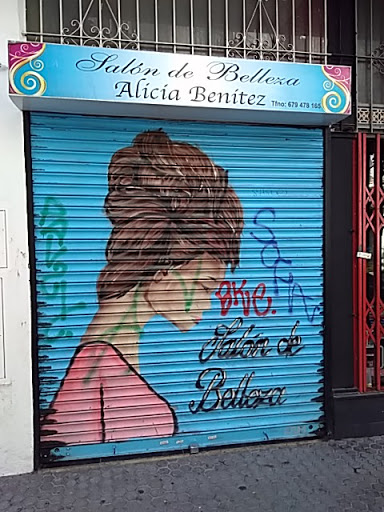 Salón de Belleza
Alicia Benitez
Tfno: 679 478 165
Salón de
Belleza